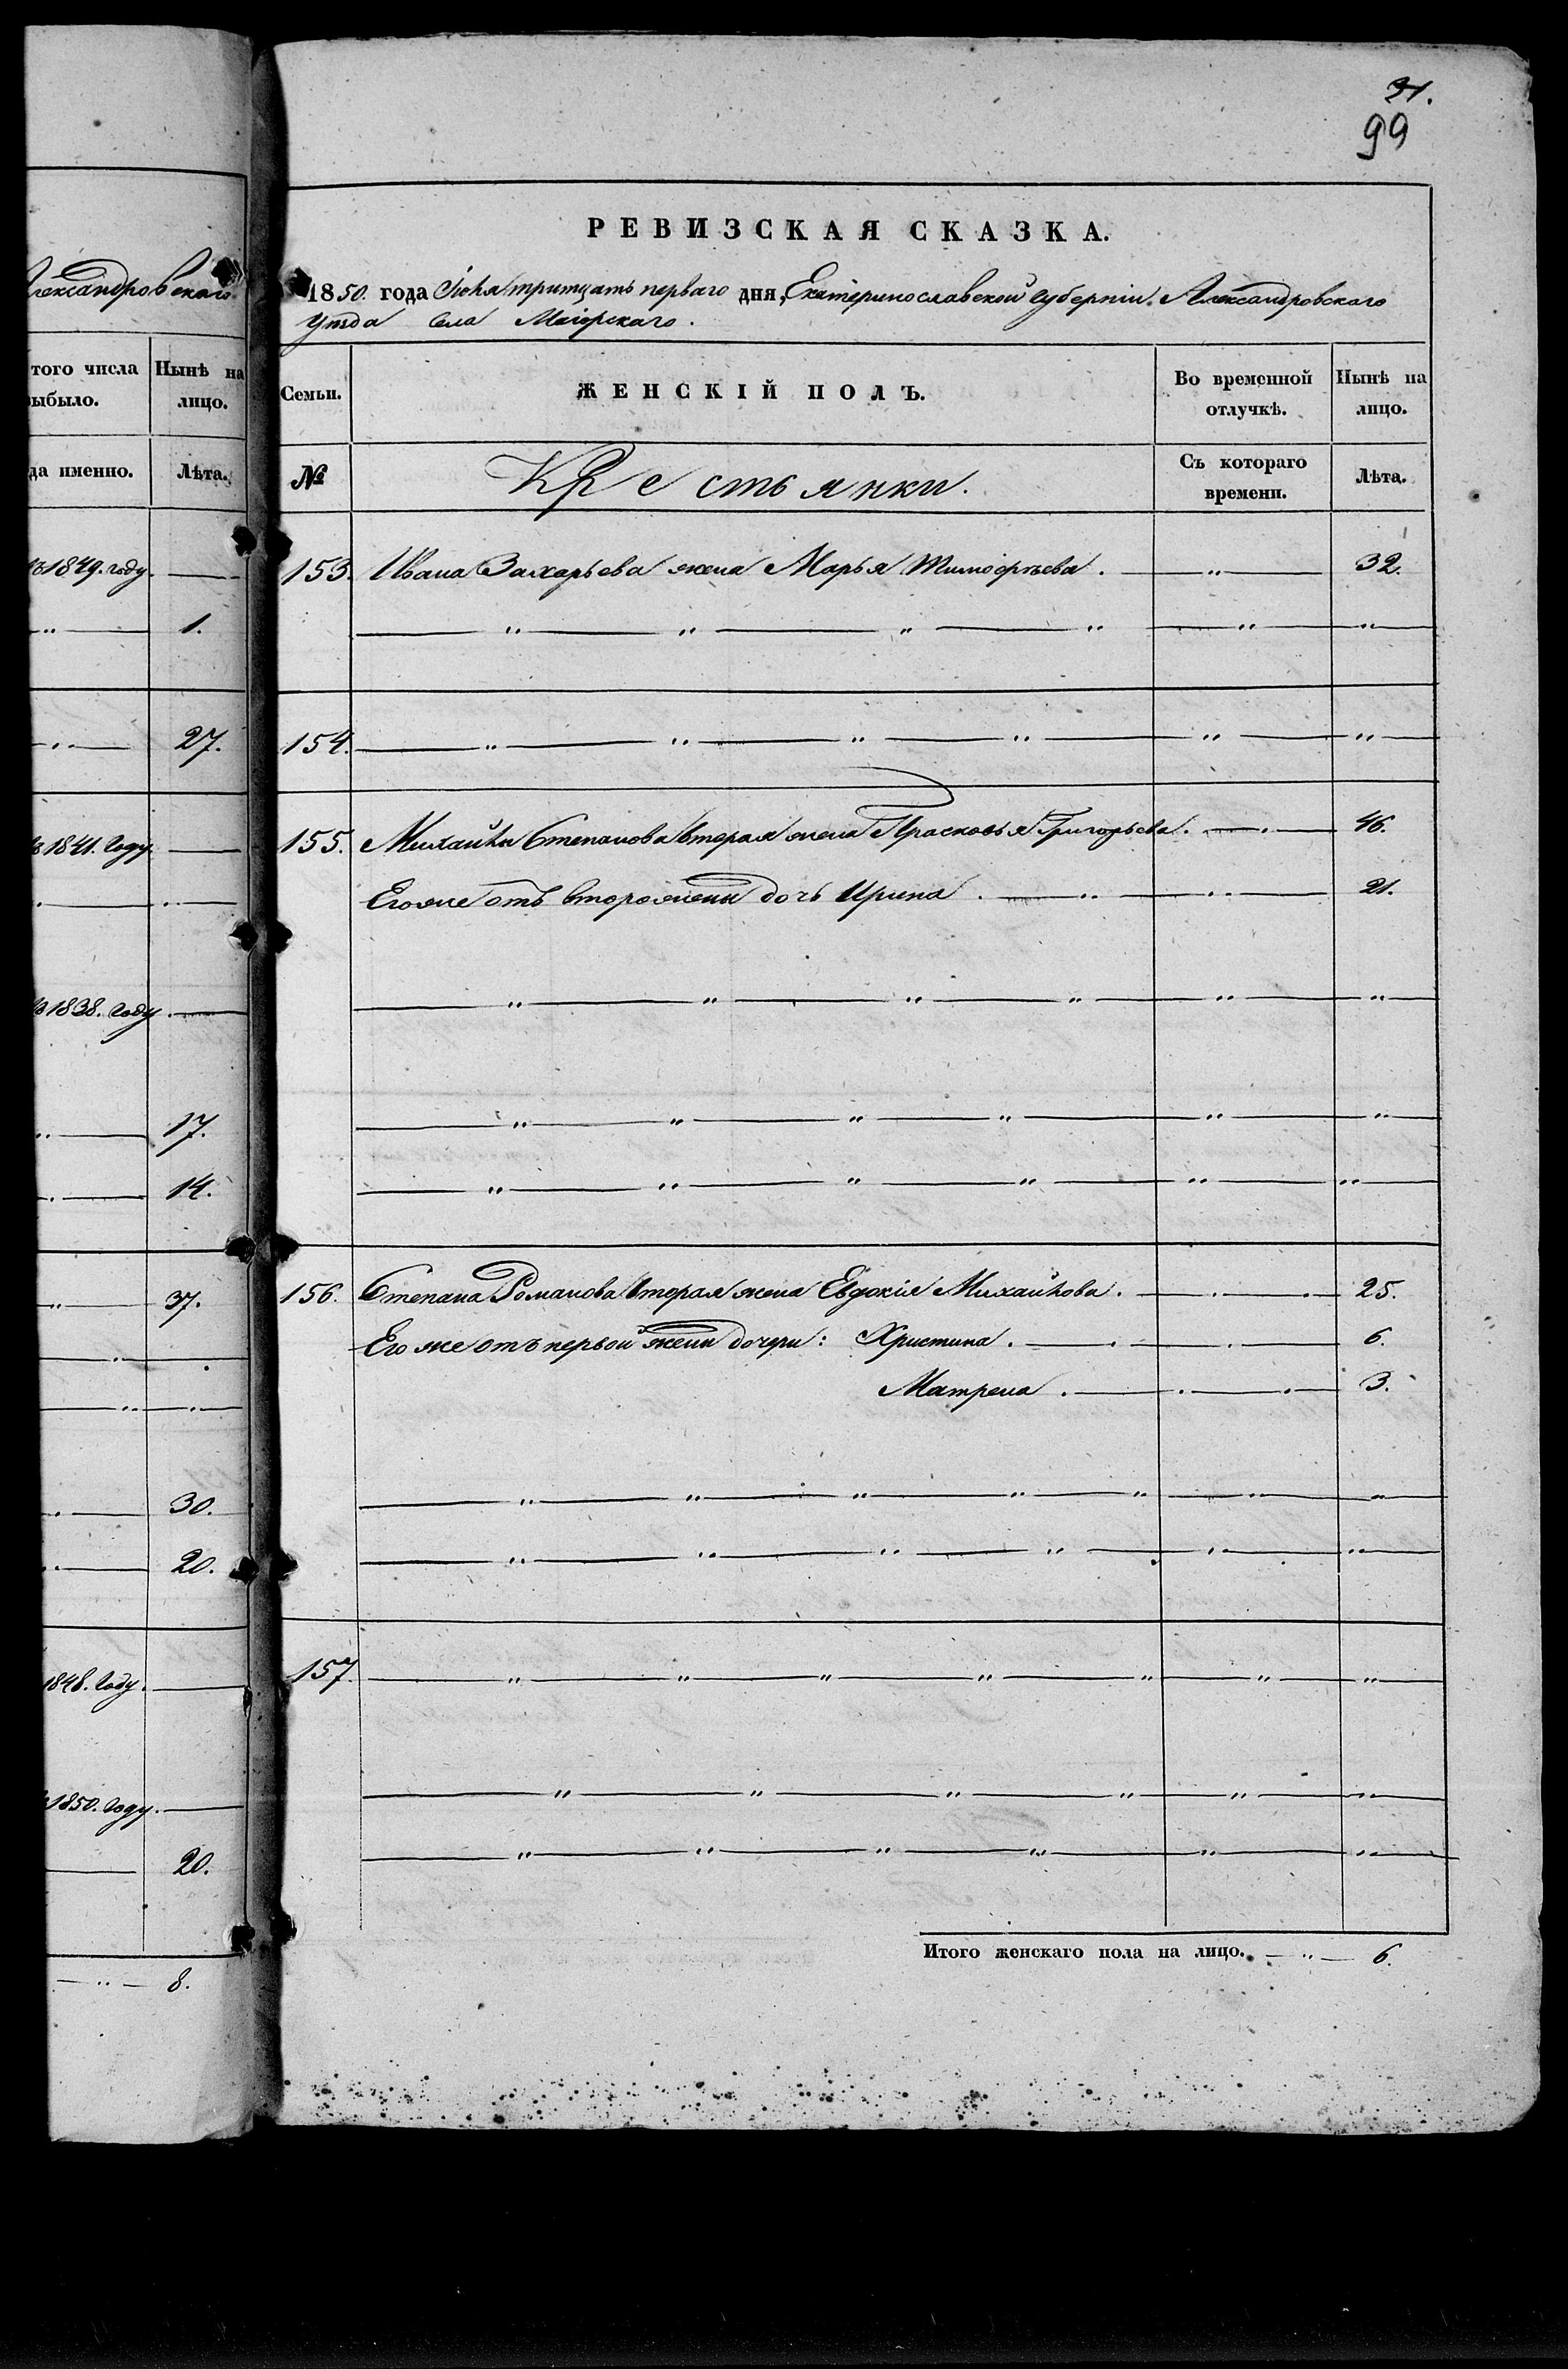 лександровскаго
того числа Нынѣ на
выбыло. лицо.
да именно. Лѣта.
въ 1849. году. —
— " — 1.
— " — 27.
въ 1841. году. —
— " — "
въ 1838. году. —
— " — 17.
— " — 14.
— " — 37.
— " —
— " — "
— " — 30.
— " — 20.
1848. году. —
1850. году. —
— 20.
— " — 8.
31.
99
РЕВИЗСКАЯ СКАЗКА.
1850. года Іюля тритцать перваго дня, Екатеринославской губерніи. Александровскаго
Уѣзда села Маіорскаго.
Семьи. ЖЕНСКІЙ ПОЛЪ. Во временной отлучкѣ. Нынѣ на лицо.
№ Крестьянки. Съ котораго времени. Лѣта.
153. Ивана Захарьева жена Марья Тимофѣева. — " — 32.
— " — " — " — " — " — " —
154. — " — " — " — " — " — " —
155. Михайлы Степанова вторая жена Прасковья Григорьева. — . — 46.
Его же отъ второй жены дочь Ирина. — " — " — 21.
— " — " — " — " — " — " —
— " — " — " — " — " — " —
— " — " — " — " — " — " —
156. Степана Романова вторая жена Евдокія Михайлова. — . — . — 25.
Его же отъ первой жены дочери: Христина. — . — . — 6.
Матрена. — . — . — 3.
— " — " — " — " — " — " — " —
— " — " — " — " — " — " —
157. — " — " — " — " — " — " — " —
— " — " — " — " — " — " —
— " — " — " — " — " — " —
Итого женскаго пола на лицо. — " — 6.